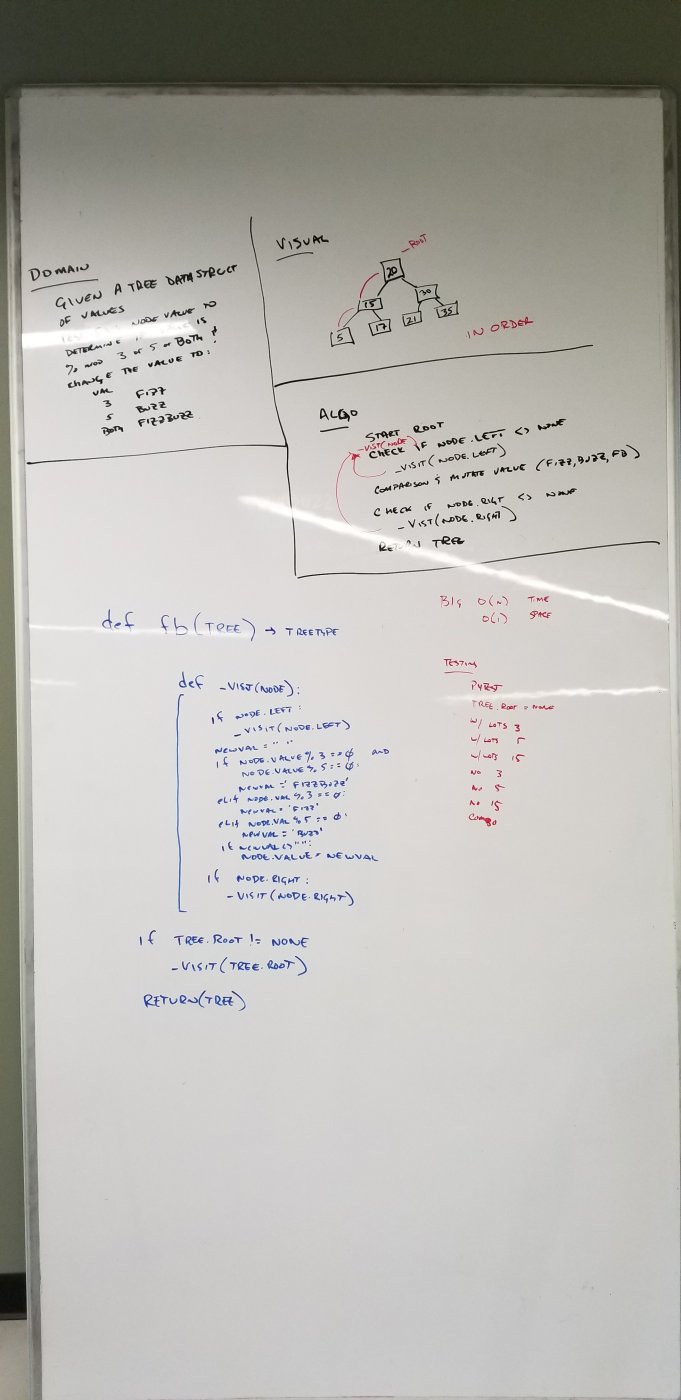 DOMAIN
GIVEN A TREE DATA STRUCT
OF VALUES
NODE VALUE TO
DETERMINE IS
% MOD 3 or 5 or BOTH &
CHANGE THE VALUE TO:
VAL
3 FIZZ
5 BUZZ
BOTH FIZZBUZZ
VISUAL
ROOT
20
15
30
5
17
21
35
IN ORDER
ALGO
START ROOT
_VIST(NODE)
CHECK IF NODE.LEFT <> NONE
_VISIT(NODE.LEFT)
COMPARISON & MUTATE VALUE (FIZZ,BUZZ,FB)
CHECK IF NODE.RIGT <> NONE
_VIST(NODE.RIGHT)
RETURN TREE
BIG O(N) TIME
O(1) SPACE
def fb(TREE) → TREETYPE
def _VISIT(NODE):
if NODE.LEFT:
_VISIT(NODE.LEFT)
NEWVAL = " "
if NODE.VALUE % 3 == 0 AND
NODE.VALUE % 5 == 0:
NEWVAL = 'FIZZBUZZ'
elif NODE.VAL % 3 == 0:
NEWVAL = 'FIZZ'
elif NODE.VAL % 5 == 0:
NEWVAL = 'BUZZ'
if NEWVAL <> "":
NODE.VALUE = NEWVAL
if NODE.RIGHT:
_VISIT(NODE.RIGHT)
if TREE.ROOT != NONE
_VISIT(TREE.ROOT)
RETURN(TREE)
TESTING
PYTEST
TREE.ROOT = NONE
W/ LOTS 3
W/ LOTS 5
W/ LOTS 15
NO 3
NO 5
NO 15
COMBO